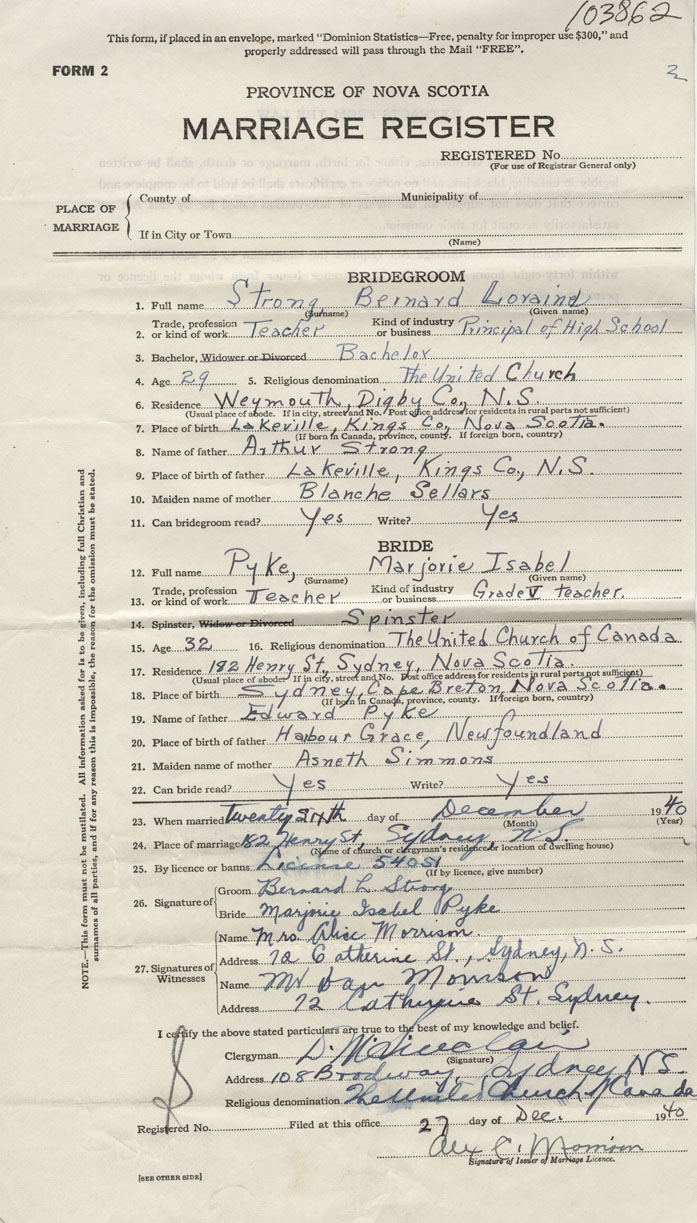 103862
This form, if placed in an envelope, marked "Dominion Statistics—Free, penalty for improper use $300," and
properly addressed will pass through the Mail "FREE".
FORM 2
2
PROVINCE OF NOVA SCOTIA
MARRIAGE REGISTER
REGISTERED No.
(For use of Registrar General only)
PLACE OF MARRIAGE
County of Municipality of
If in City or Town
(Name)
BRIDEGROOM
1. Full name Strong Bernard Loraine
(Surname) (Given name)
2. Trade, profession or kind of work Teacher Kind of industry or business Principal of High School
3. Bachelor, Widower or Divorced Bachelor
4. Age 29 5. Religious denomination The United Church
6. Residence Weymouth, Digby Co., N.S.
(Usual place of abode. If in city, street and No. Post office address for residents in rural parts not sufficient)
7. Place of birth Lakeville, Kings Co., Nova Scotia.
(If born in Canada, province, county. If foreign born, country)
8. Name of father Arthur Strong
9. Place of birth of father Lakeville, Kings Co., N.S.
10. Maiden name of mother Blanche Sellars
11. Can bridegroom read? Yes Write? Yes
BRIDE
12. Full name Pyke, Marjorie Isabel
(Surname) (Given name)
13. Trade, profession or kind of work Teacher Kind of industry or business Grade V teacher.
14. Spinster, Widow or Divorced Spinster
15. Age 32 16. Religious denomination The United Church of Canada
17. Residence 182 Henry St, Sydney, Nova Scotia.
(Usual place of abode. If in city, street and No. Post office address for residents in rural parts not sufficient)
18. Place of birth Sydney, Cape Breton, Nova Scotia.
(If born in Canada, province, county. If foreign born, country)
19. Name of father Edward Pyke
20. Place of birth of father Harbour Grace, Newfoundland
21. Maiden name of mother Asneth Simmons
22. Can bride read? Yes Write? Yes
23. When married twenty sixth day of December 1940
(Month) (Year)
24. Place of marriage 182 Henry St, Sydney, N.S.
(Name of church or clergyman's residence or location of dwelling house)
25. By licence or banns License 54051
(If by licence, give number)
26. Signature of
Groom Bernard L. Strong
Bride Marjorie Isabel Pyke
27. Signatures of Witnesses
Name Mrs. Alice Morrison.
Address 72 Catherine St., Sydney, N.S.
Name Mr Dan Morrison
Address 72 Catherine St. Sydney.
I certify the above stated particulars are true to the best of my knowledge and belief.
Clergyman
(Signature)
Address 108 Brodway, Sydney N.S.
Religious denomination The United Church of Canada
Registered No. Filed at this office 27 day of Dec. 1940
Alex C. Morrison
Signature of Issuer of Marriage Licence.
[SEE OTHER SIDE]
NOTE.—This form must not be mutilated. All information asked for is to be given, including full Christian and
surnames of all parties, and if for any reason this is impossible, the reason for the omission must be stated.